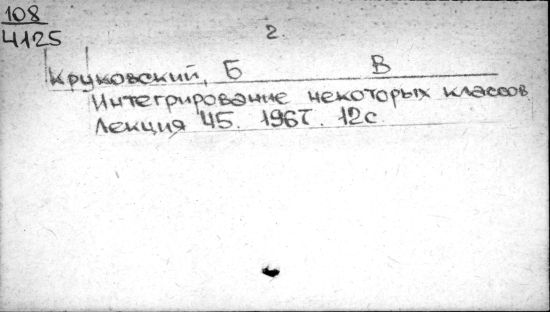 108
4125
2.
Круковский, Б В
Интегрирование некоторых классов
Лекция 45. 1967. 12с